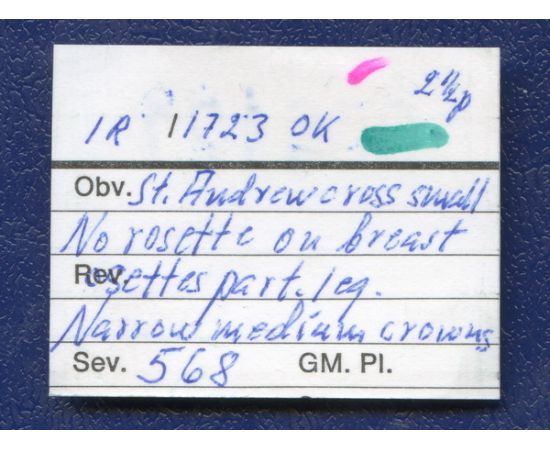 2 1/2 p
1 R 11723 OK
Obv. St. Andrew cross small
No rosette on breast
Rev. osettes part. leg.
Narrow medium crowns
Sev. 568 GM. Pl.